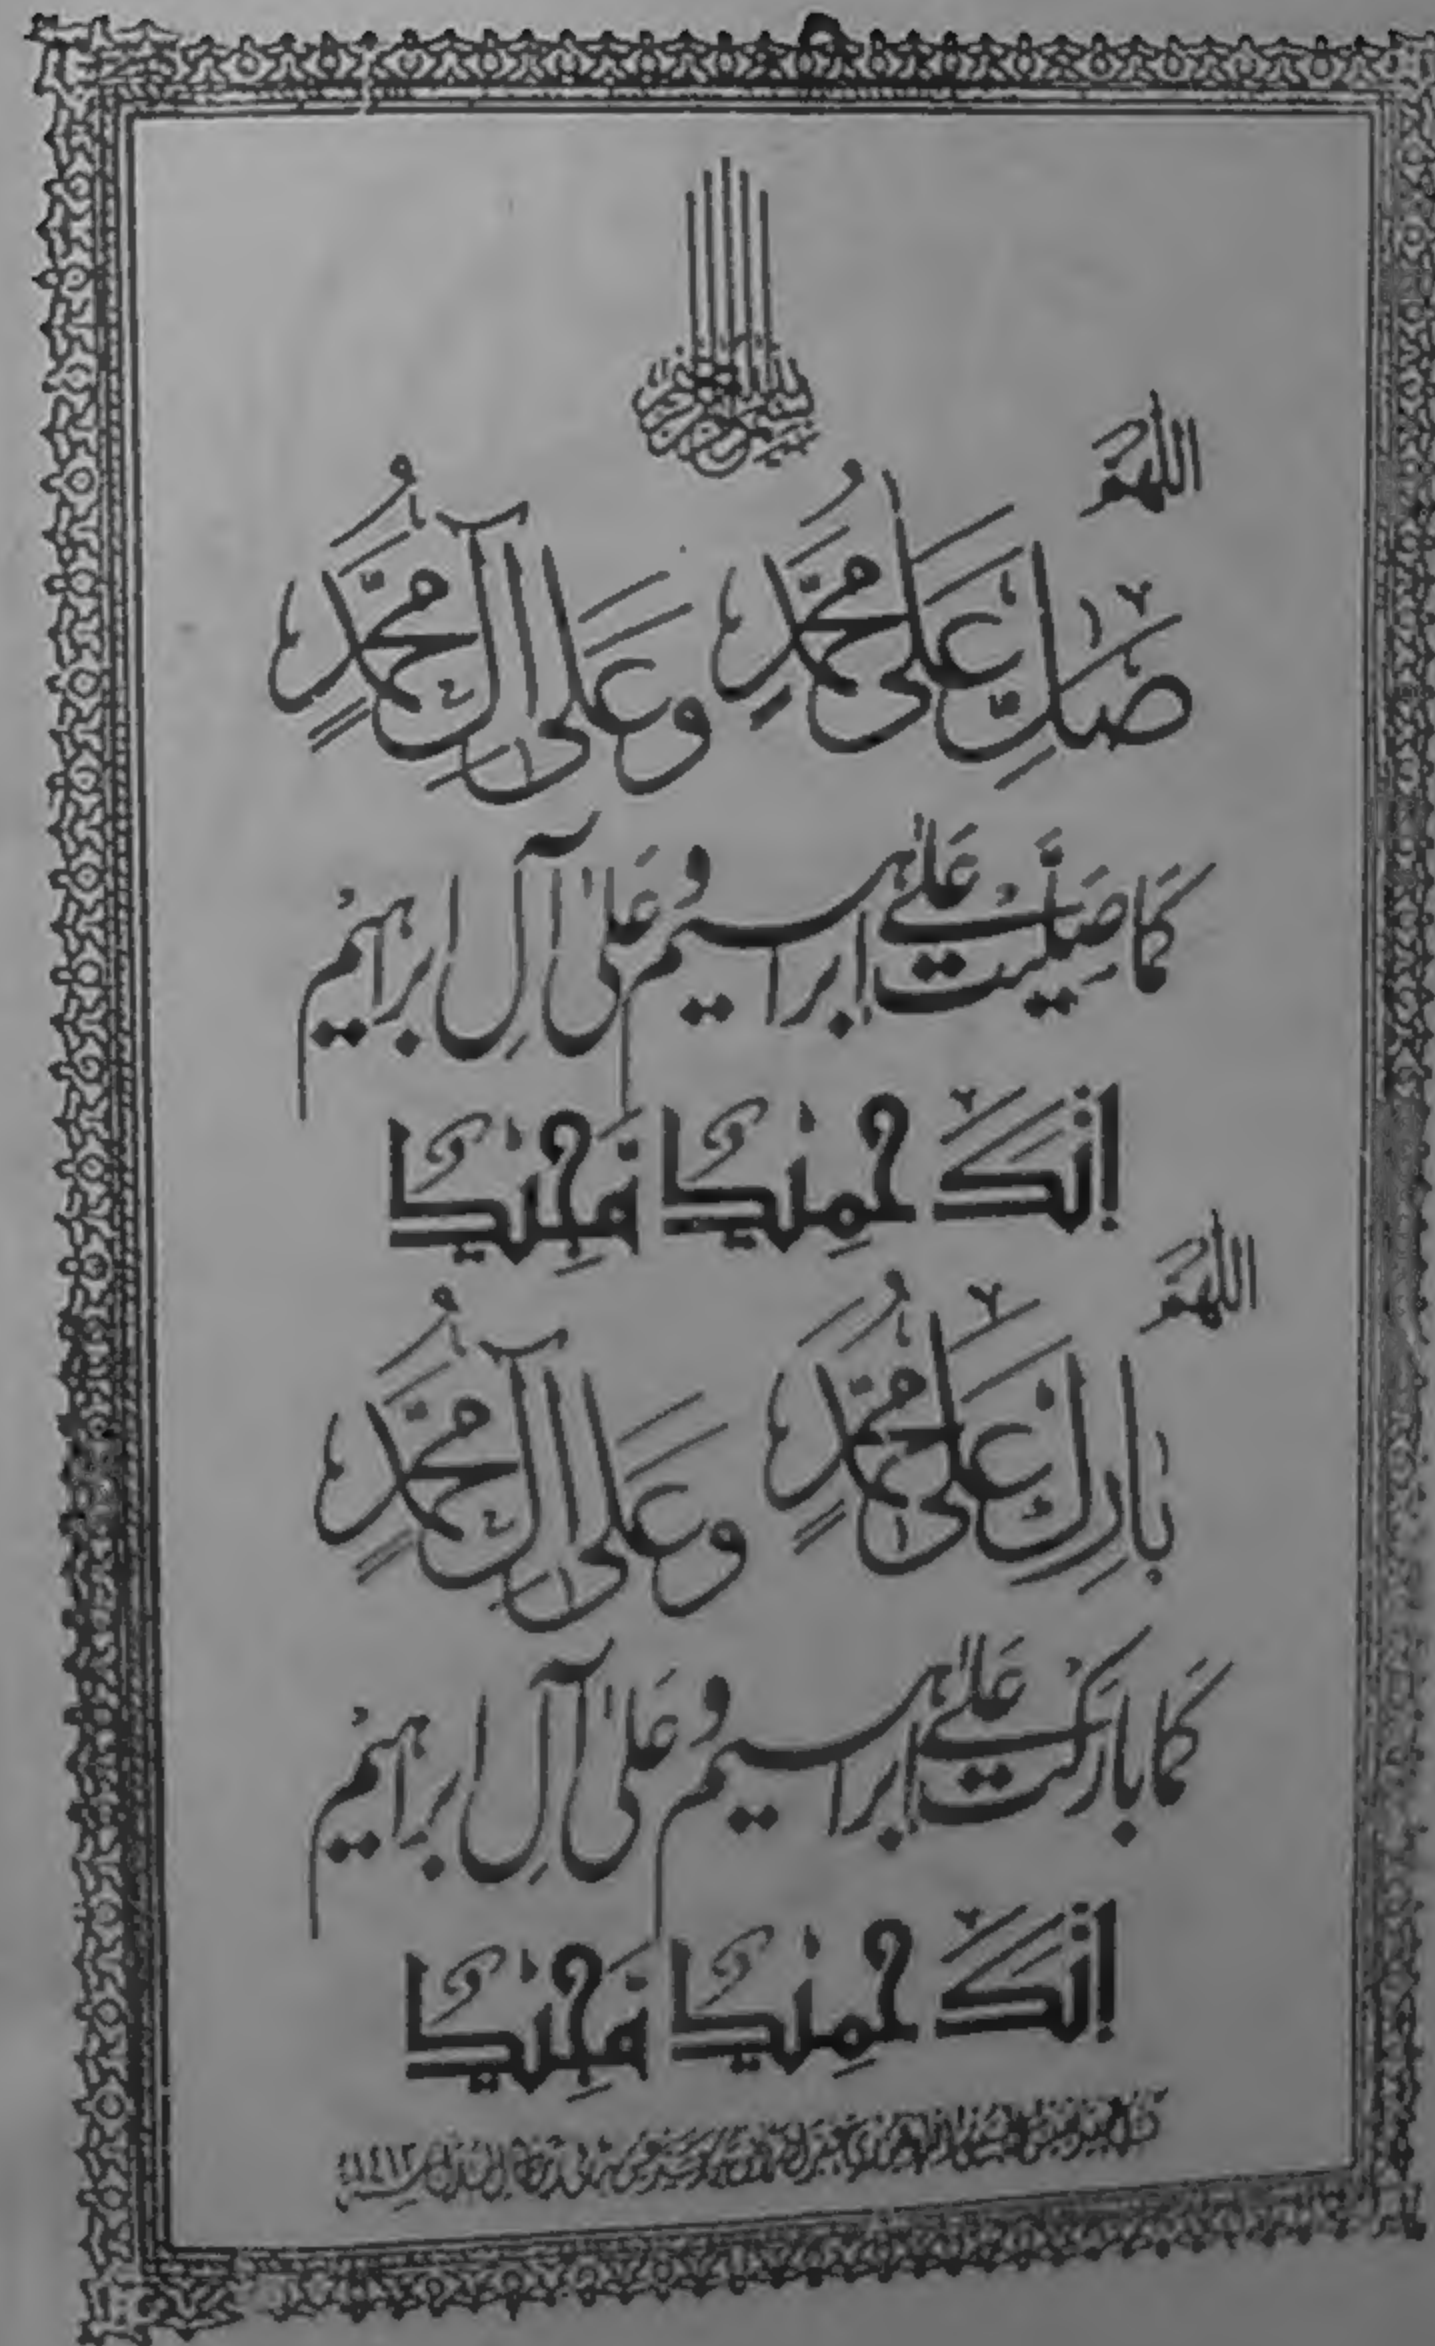 بسم الله الرحمن الرحيم
اللهم
صَلِّ عَلَى مُحَمَّدٍ وَعَلَى آلِ مُحَمَّدٍ
كما صليت على إبراهيم وعلى آل إبراهيم
إنك حميد مجيد
اللهم
بارك على محمد وعلى آل محمد
كما باركت على إبراهيم وعلى آل إبراهيم
إنك حميد مجيد